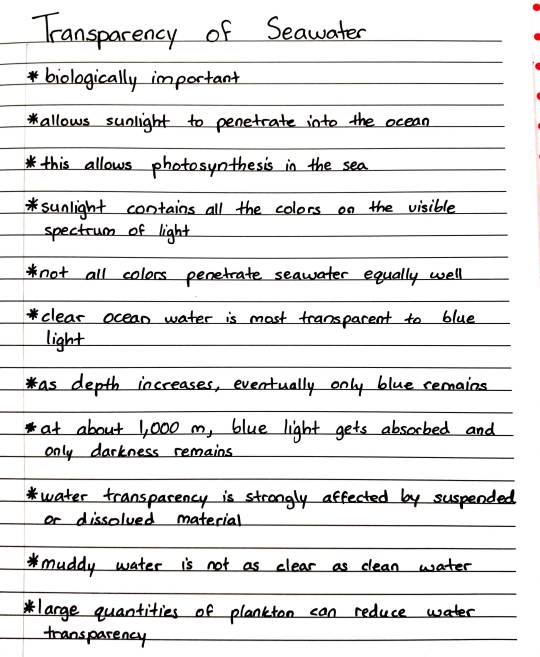 Transparency of Seawater
* biologically important
* allows sunlight to penetrate into the ocean
* this allows photosynthesis in the sea
* sunlight contains all the colors on the visible
spectrum of light
* not all colors penetrate seawater equally well
* clear ocean water is most transparent to blue
light
* as depth increases, eventually only blue remains
* at about 1,000 m, blue light gets absorbed and
only darkness remains
* water transparency is strongly affected by suspended
or dissolved material
* muddy water is not as clear as clean water
* large quantities of plankton can reduce water
transparency